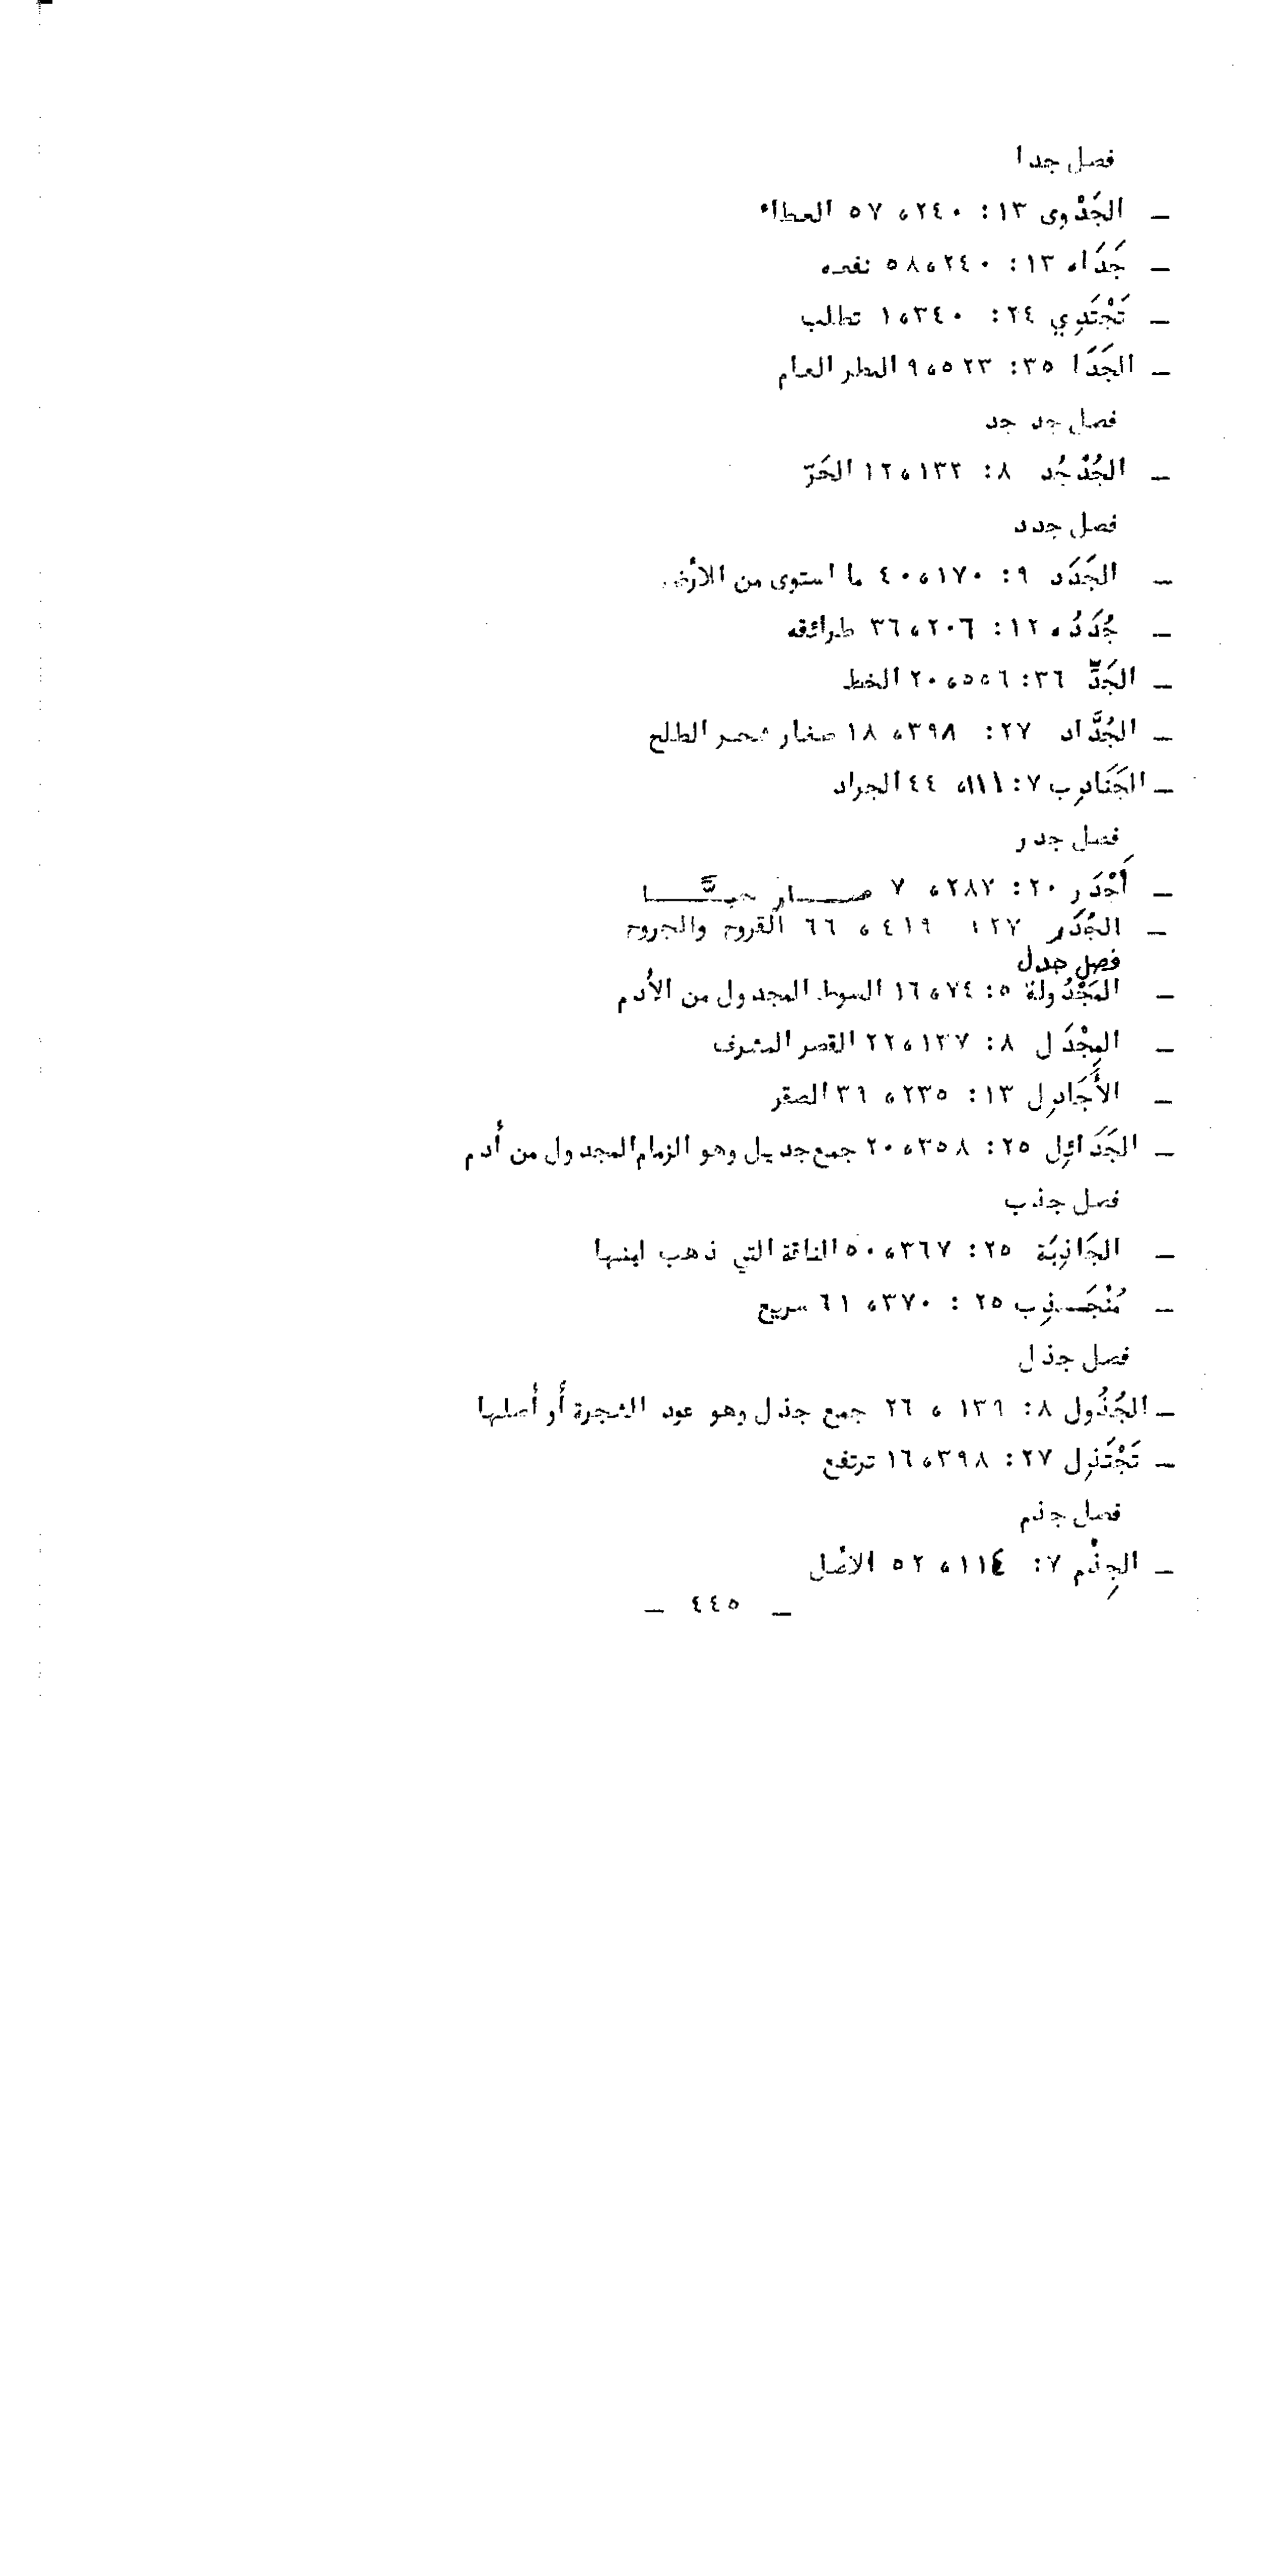 فصل جدا
ـ الجَدْوى ١٣: ٢٤٠، ٥٧ العطاء
ـ جَدَاه ١٣: ٢٤٠، ٥٨ نفعه
ـ تَجْتَدِي ٢٤: ٣٤٠، ١ تطلب
ـ الجَدَا ٣٥: ٥٢٣، ٩ المطر العام
فصل جد جد
ـ الجُدْجُد ٨: ١٣٢، ١٢ الحَرّ
فصل جدد
ـ الجَدَد ٩: ١٧٠، ٤٠ ما استوى من الأرض
ـ جُدَدُه ١٢: ٢٠٦، ٣٦ طرائقه
ـ الجَدّ ٣٦: ٥٥٦، ٢٠ الخط
ـ الجُدَّاد ٢٧: ٣٩٨، ١٨ صغار شجر الطلح
ـ الجَنَادِب ٧: ١١١، ٤٤ الجراد
فصل جدر
ـ أَجْدَر ٢٠: ٢٨٧، ٧ صار
ـ الجُدَر ٢٧: ٤١٩، ٦٦ القروح والجروح
فصل جدل
ـ المَجْدُولة ٥: ٧٤، ١٦ السوط المجدول من الأدم
ـ المِجْدَل ٨: ١٣٧، ٢٢ القصر المشرف
ـ الأَجَادِل ١٣: ٢٣٥، ٣٩ الصقر
ـ الجَدَائِل ٢٥: ٣٥٨، ٢٠ جمع جديل وهو الزمام المجدول من أدم
فصل جذب
ـ الجَاذِبَة ٢٥: ٣٦٧، ٥٠ الناقة التي ذهب لبنها
ـ مُنْجَـذِب ٢٥: ٣٧٠، ٦١ سريع
فصل جذل
ـ الجُذُول ٨: ١٣٩، ٢٦ جمع جذل وهو عود الشجرة أو أصلها
ـ تَجْتَذِل ٢٧: ٣٩٨، ١٦ ترتفع
فصل جذم
ـ الجِذْم ٧: ١١٤، ٥٢ الأصل
ـ ٤٤٥ ـ